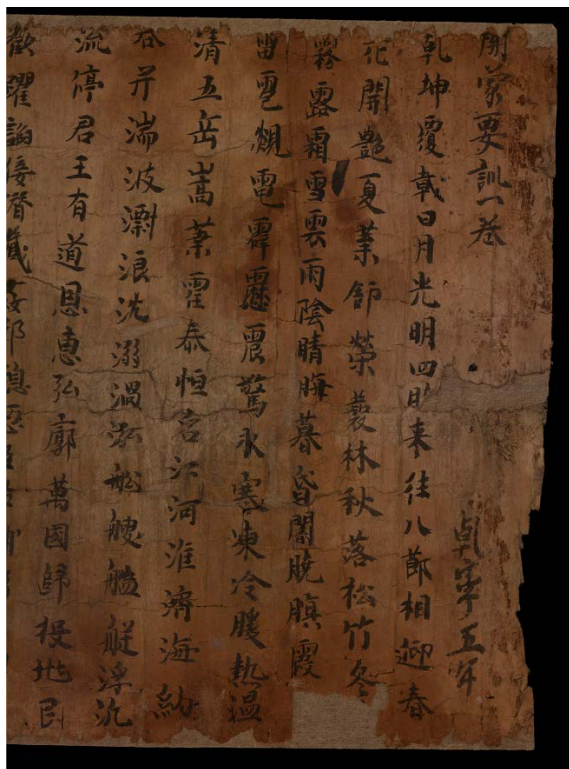 開蒙要訓一卷 乾寧五年
乾坤覆載日月光明四時来往八節相迎春
花開艷夏葉舒榮藂林秋落松竹冬
霧露霜雪雲雨陰晴晦暮昏闇晚暝霞
雷雹電霹靂震驚氷寒凍冷暖熱温
清五岳嵩華霍泰恒名江河淮濟海納
谷并湍波漂浪沈溺渦泓舩艘艦艇浮汎
流停君王有道恩惠弘廓萬國歸投地民
歡躍諂佞潛藏姦邪